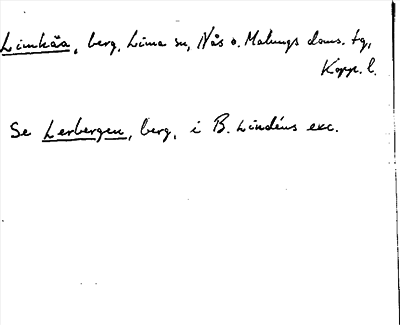 Limkåa, berg, Lima sn, Nås o. Malungs doms. tg,
Kopp. l.
Se Lerbergen, berg, i B. Lindéns exc.